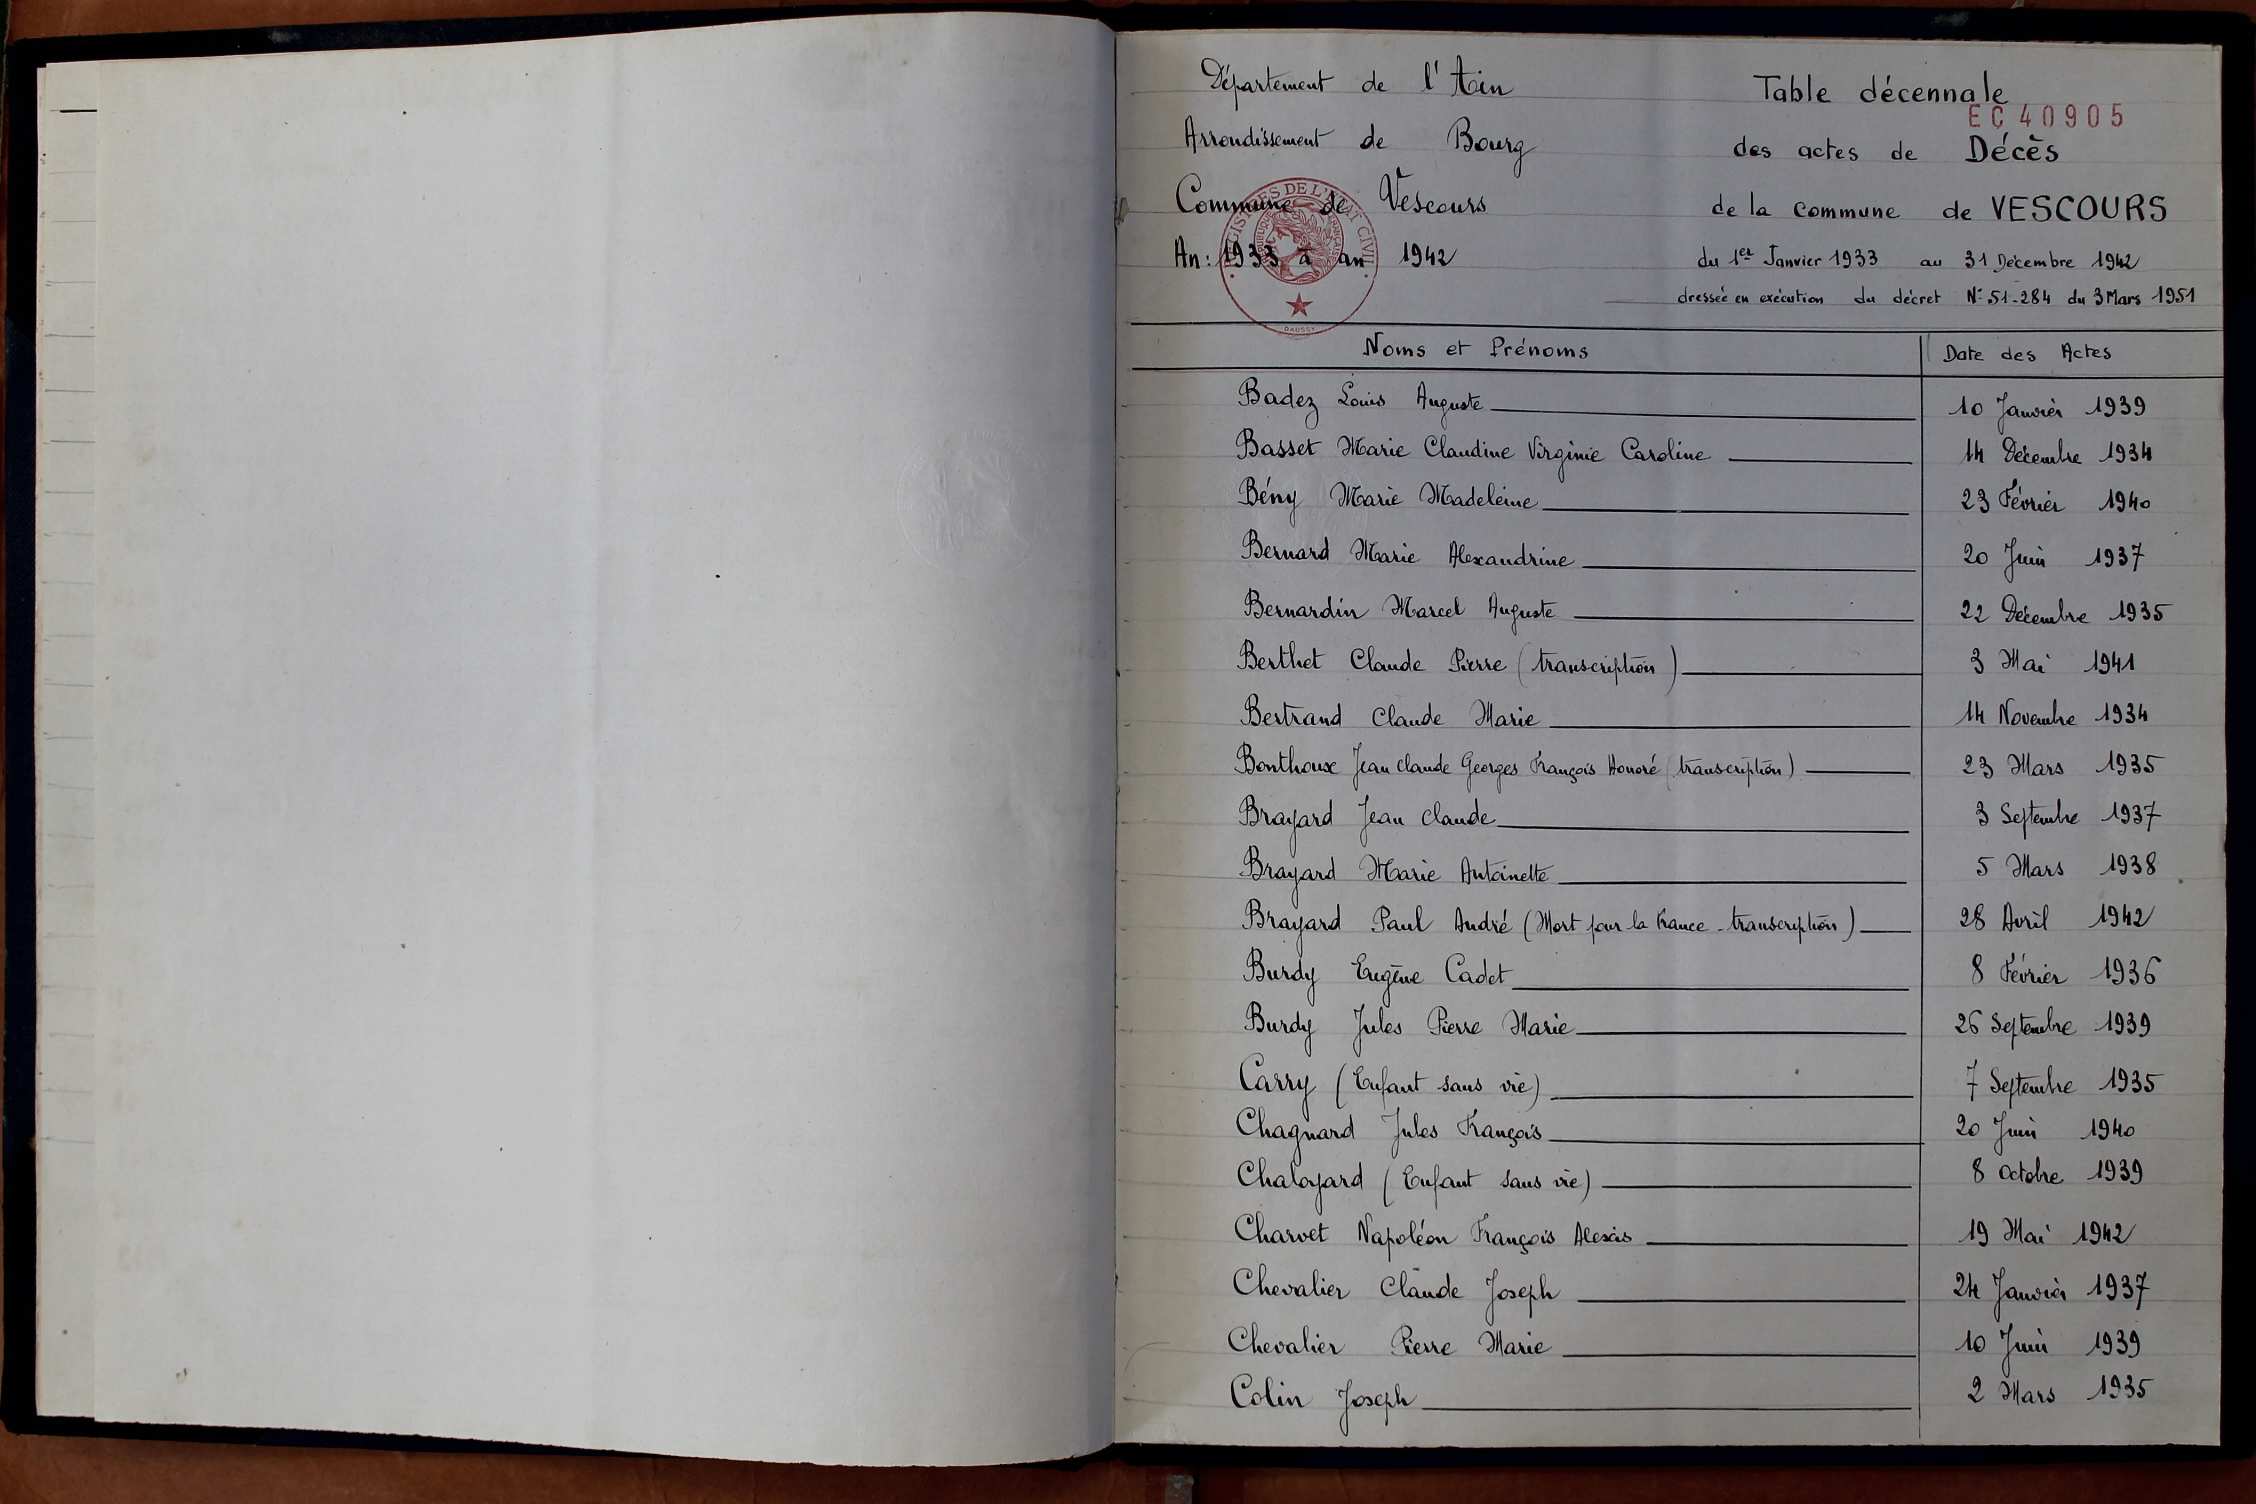 Département de l'Ain
Arrondissement de Bourg
Commune de Vescours
An : 1933 à an 1942
REGISTRES DE L'ÉTAT CIVIL
RÉPUBLIQUE FRANÇAISE
DAUSSY
Table décennale
EC 40905
des actes de Décès
de la commune de VESCOURS
du 1er Janvier 1933 au 31 Décembre 1942
dressée en exécution du décret N° 51-284 du 3 Mars 1951
Noms et Prénoms Date des Actes
Badez Louis Auguste 10 Janvier 1939
Basset Marie Claudine Virginie Caroline 14 Décembre 1934
Bény Marie Madeleine 23 Février 1940
Bernard Marie Alexandrine 20 Juin 1937
Bernardin Marcel Auguste 22 Décembre 1935
Berthet Claude Pierre (transcription) 3 Mai 1941
Bertrand Claude Marie 14 Novembre 1934
Bonthoux Jean Claude Georges François Honoré (transcription) 23 Mars 1935
Brayard Jean Claude 3 Septembre 1937
Brayard Marie Antoinette 5 Mars 1938
Brayard Paul André (Mort pour la France - transcription) 28 Avril 1942
Burdy Eugène Cadet 8 Février 1936
Burdy Jules Pierre Marie 26 Septembre 1939
Carry (Enfant sans vie) 7 Septembre 1935
Chagnard Jules François 20 Juin 1940
Chaloyard (Enfant sans vie) 8 Octobre 1939
Charvet Napoléon François Alexis 19 Mai 1942
Chevalier Claude Joseph 24 Janvier 1937
Chevalier Pierre Marie 10 Juin 1939
Colin Joseph 2 Mars 1935